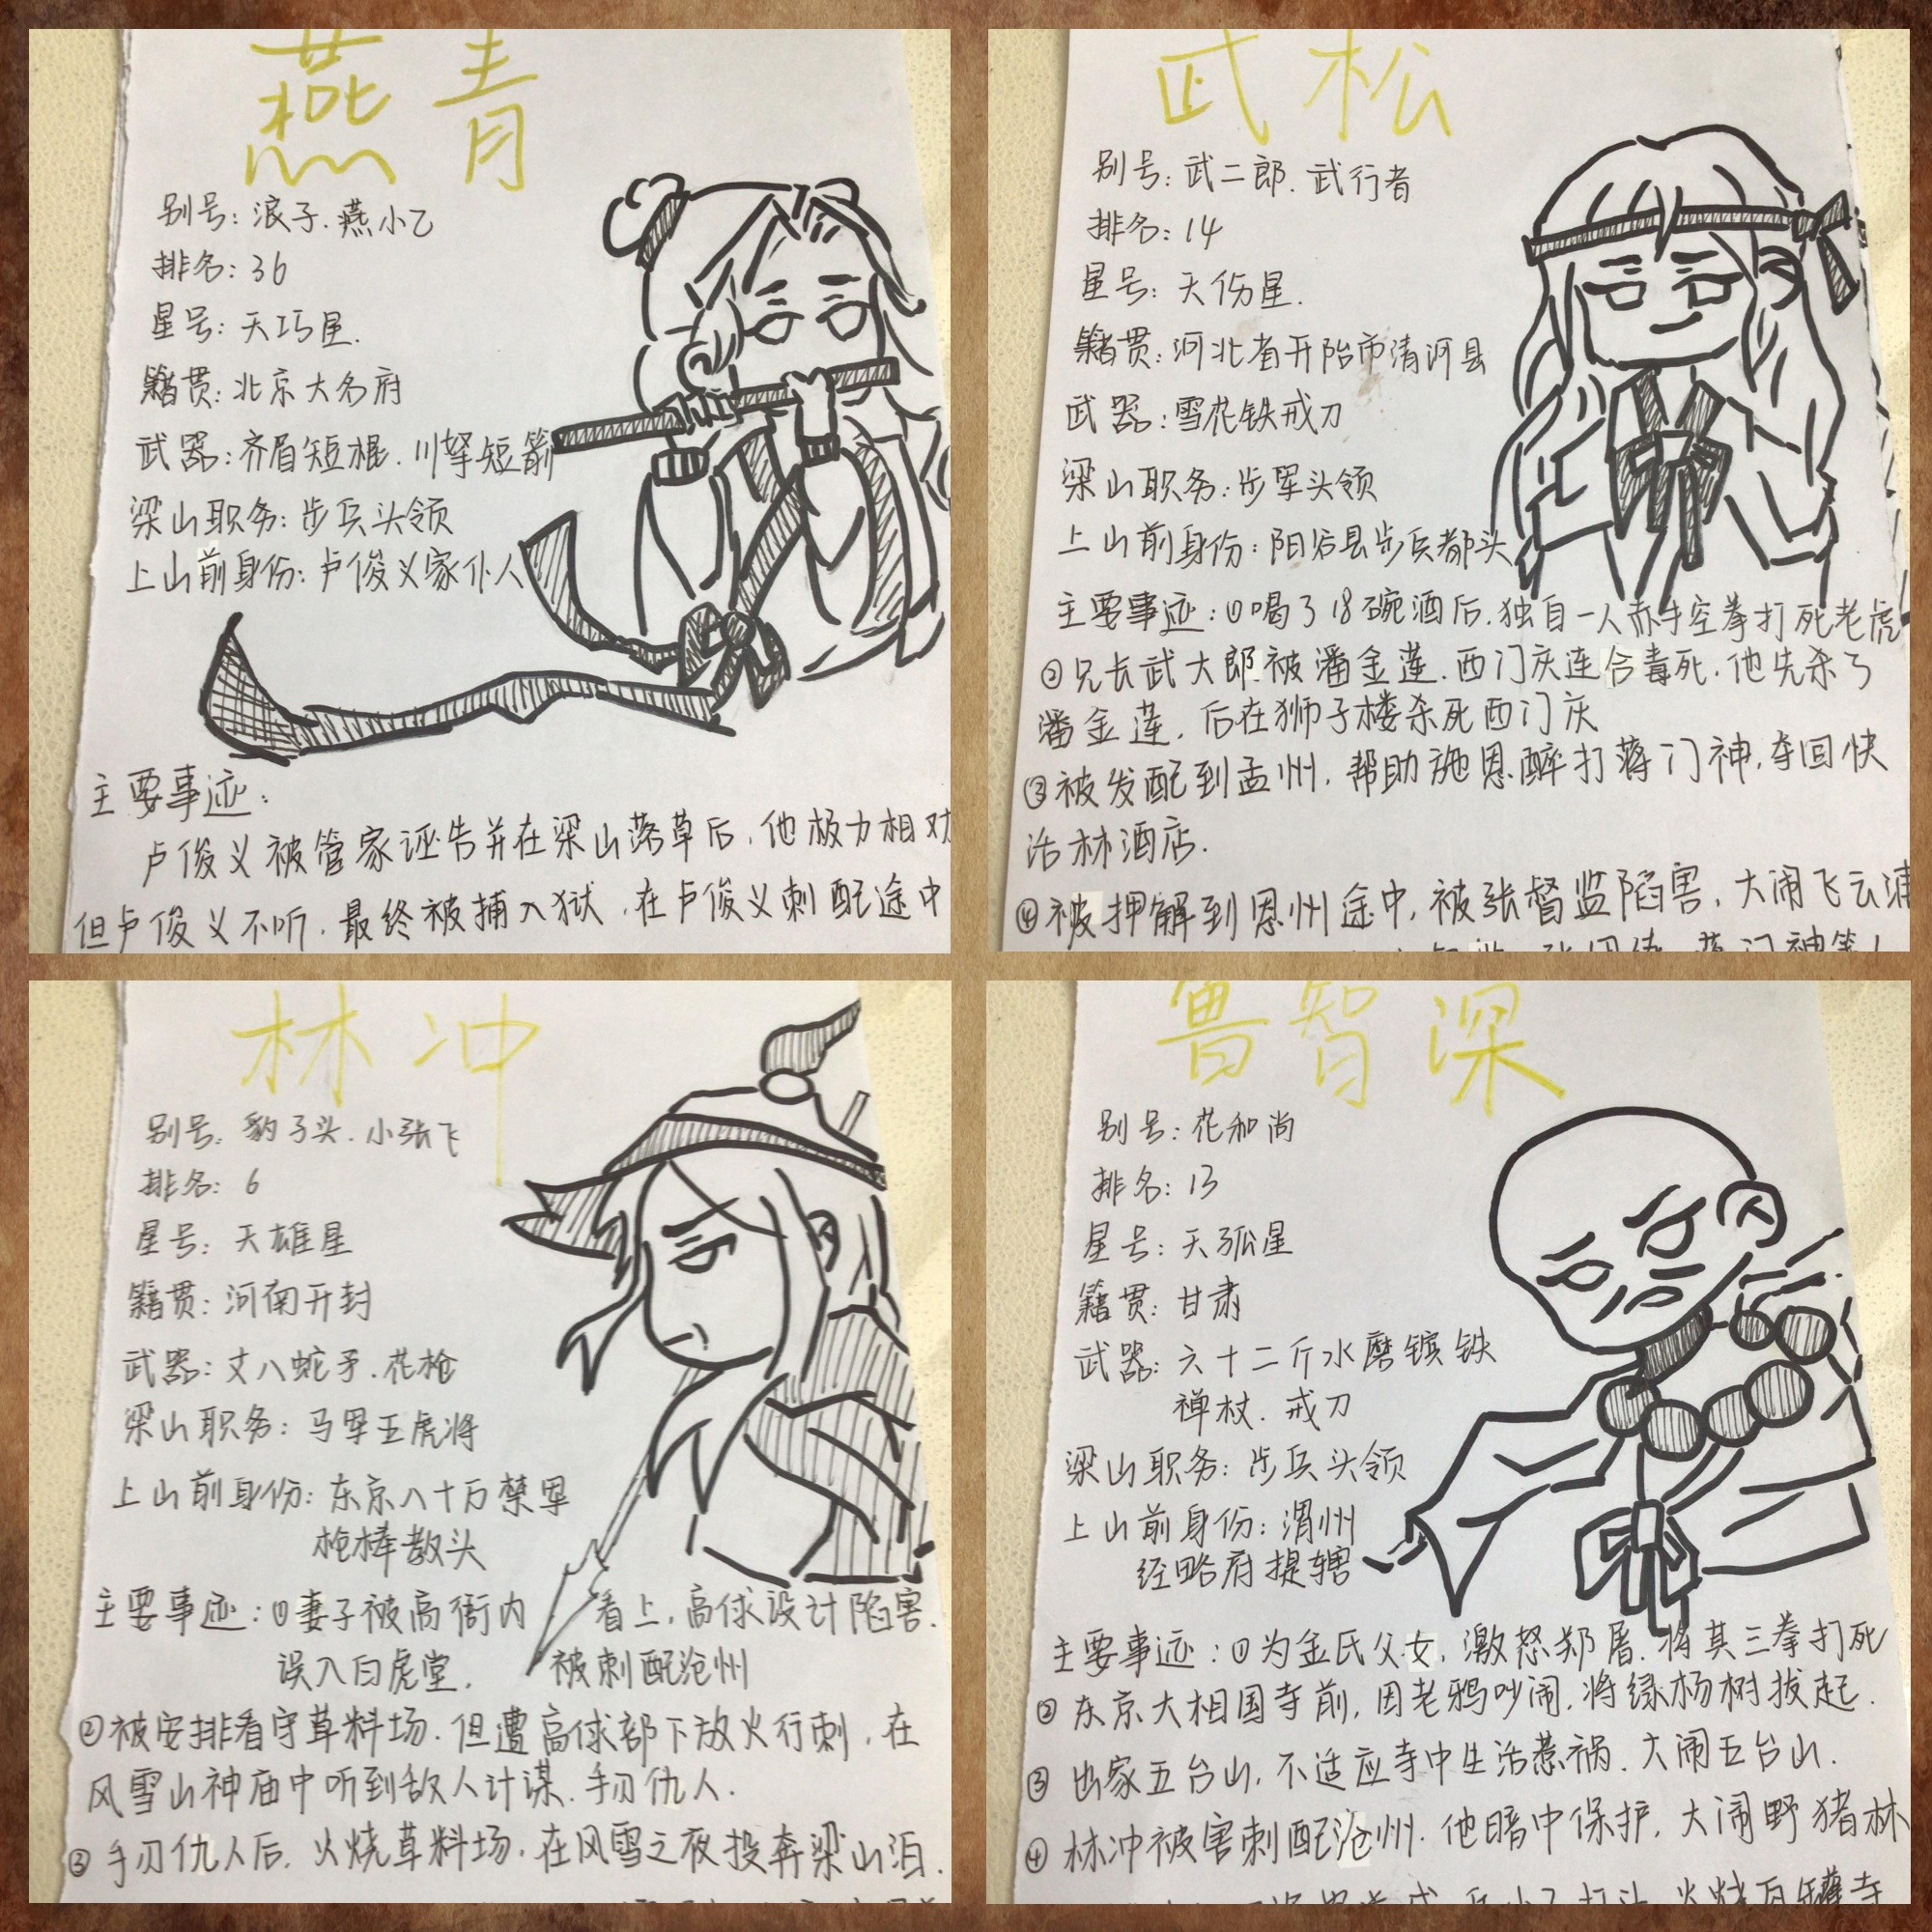 燕青
别号：浪子.燕小乙
排名：36
星号：天巧星.
籍贯：北京大名府
武器：齐眉短棍.川弩短箭
梁山职务：步兵头领
上山前身份：卢俊义家仆人
主要事迹：
卢俊义被管家诬告并在梁山落草后，他极力相劝
但卢俊义不听，最终被捕入狱，在卢俊义刺配途中
武松
别号：武二郎.武行者
排名：14
星号：天伤星.
籍贯：河北省开贻市清河县
武器：雪花铁戒刀
梁山职务：步军头领
上山前身份：阳谷县步兵都头
主要事迹：①喝了18碗酒后.独自一人赤手空拳打死老虎
②兄长武大郎被潘金莲.西门庆连合毒死.他先杀了
潘金莲，后在狮子楼杀死西门庆
③被发配到孟州，帮助施恩醉打蒋门神,夺回快
活林酒店.
④被押解到恩州途中，被张督监陷害，大闹飞云浦
林冲
别号：豹子头.小张飞
排名：6
星号：天雄星
籍贯：河南开封
武器：丈八蛇矛.花枪
梁山职务：马军五虎将
上山前身份：东京八十万禁军
枪棒教头
主要事迹：①妻子被高衙内看上，高俅设计陷害.
误入白虎堂，被刺配沧州
②被安排看守草料场.但遭高俅部下放火行刺，在
风雪山神庙中听到敌人计谋.手刃仇人.
③手刃仇人后，火烧草料场，在风雪之夜投奔梁山泊.
鲁智深
别号：花和尚
排名：13
星号：天孤星
籍贯：甘肃
武器：六十二斤水磨镔铁
禅杖.戒刀
梁山职务：步兵头领
上山前身份：渭州
经略府提辖
主要事迹：①为金氏父女，激怒郑屠.将其三拳打死
②东京大相国寺前，因老鸦吵闹，将绿杨树拔起.
③出家五台山，不适应寺中生活惹祸.大闹五台山.
④林冲被害刺配沧州.他暗中保护，大闹野猪林